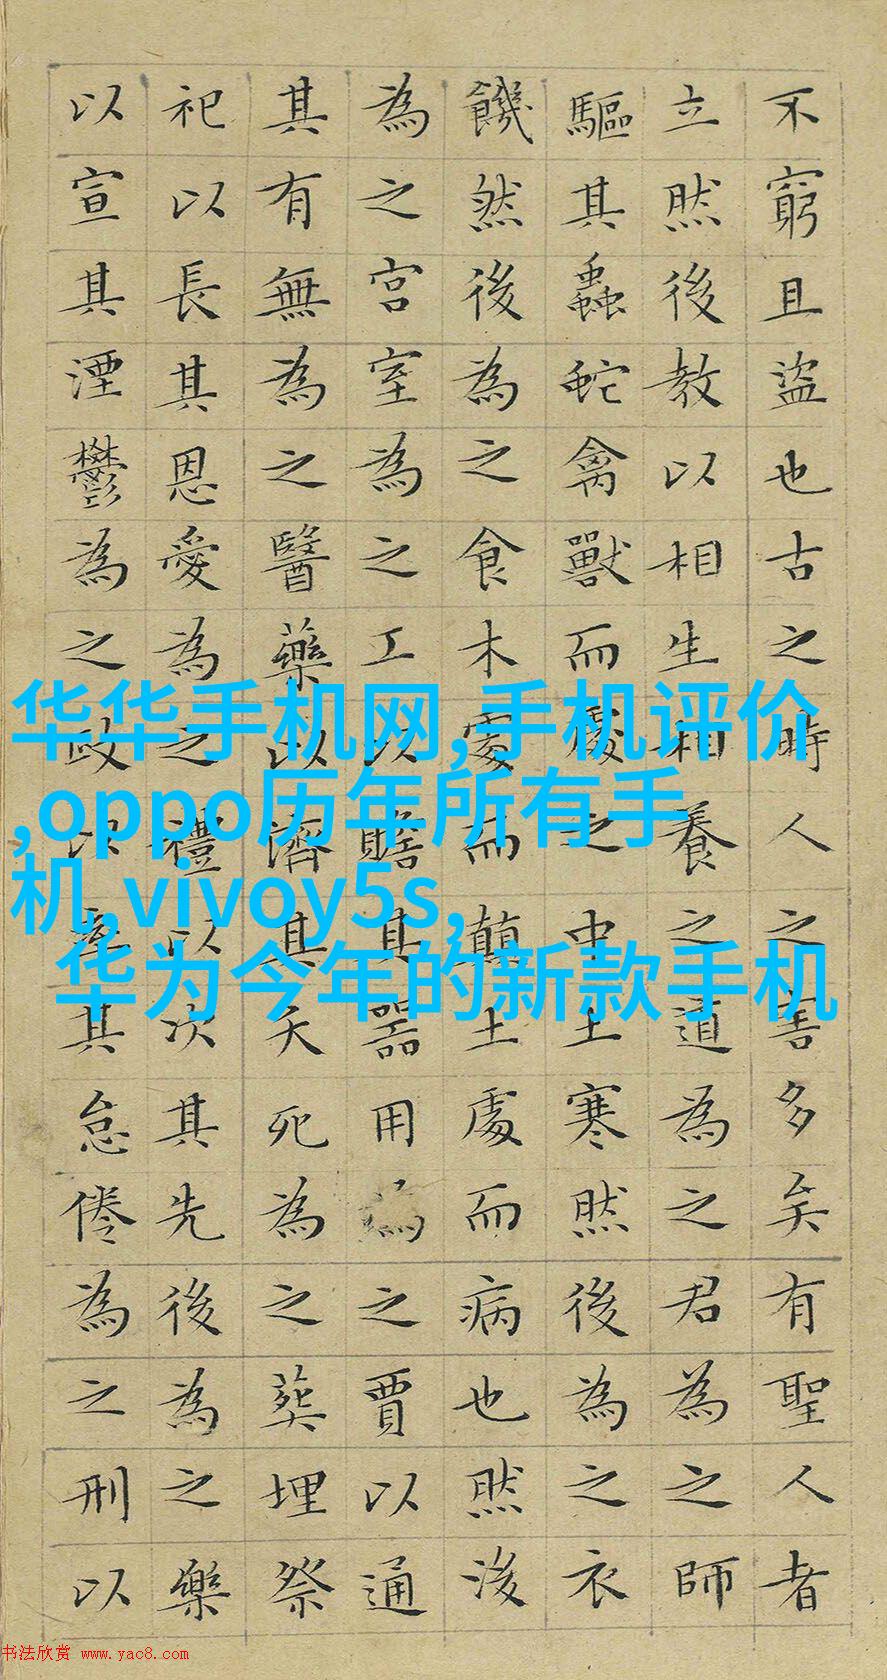 不窮且盜也古之時人之害多矣有聖人者
立然後教以相生相養之道為之君為之師
驅其蟲蛇禽獸而處之中土寒然後為之衣
饑然後為之食木處而顛土處而病也然後
為之宮室為之工以贍其器用為之賈以通
其有無為之醫藥以濟其夭死為之葬埋祭
祀以長其恩愛為之禮以次其先後為之樂
以宣其湮鬱為之政以率其怠倦為之刑以
华华手机网,手机评价
,oppo历年所有手
机,vivoy5s,
华为今年的新款手机
书法欣赏 www.yac8.com